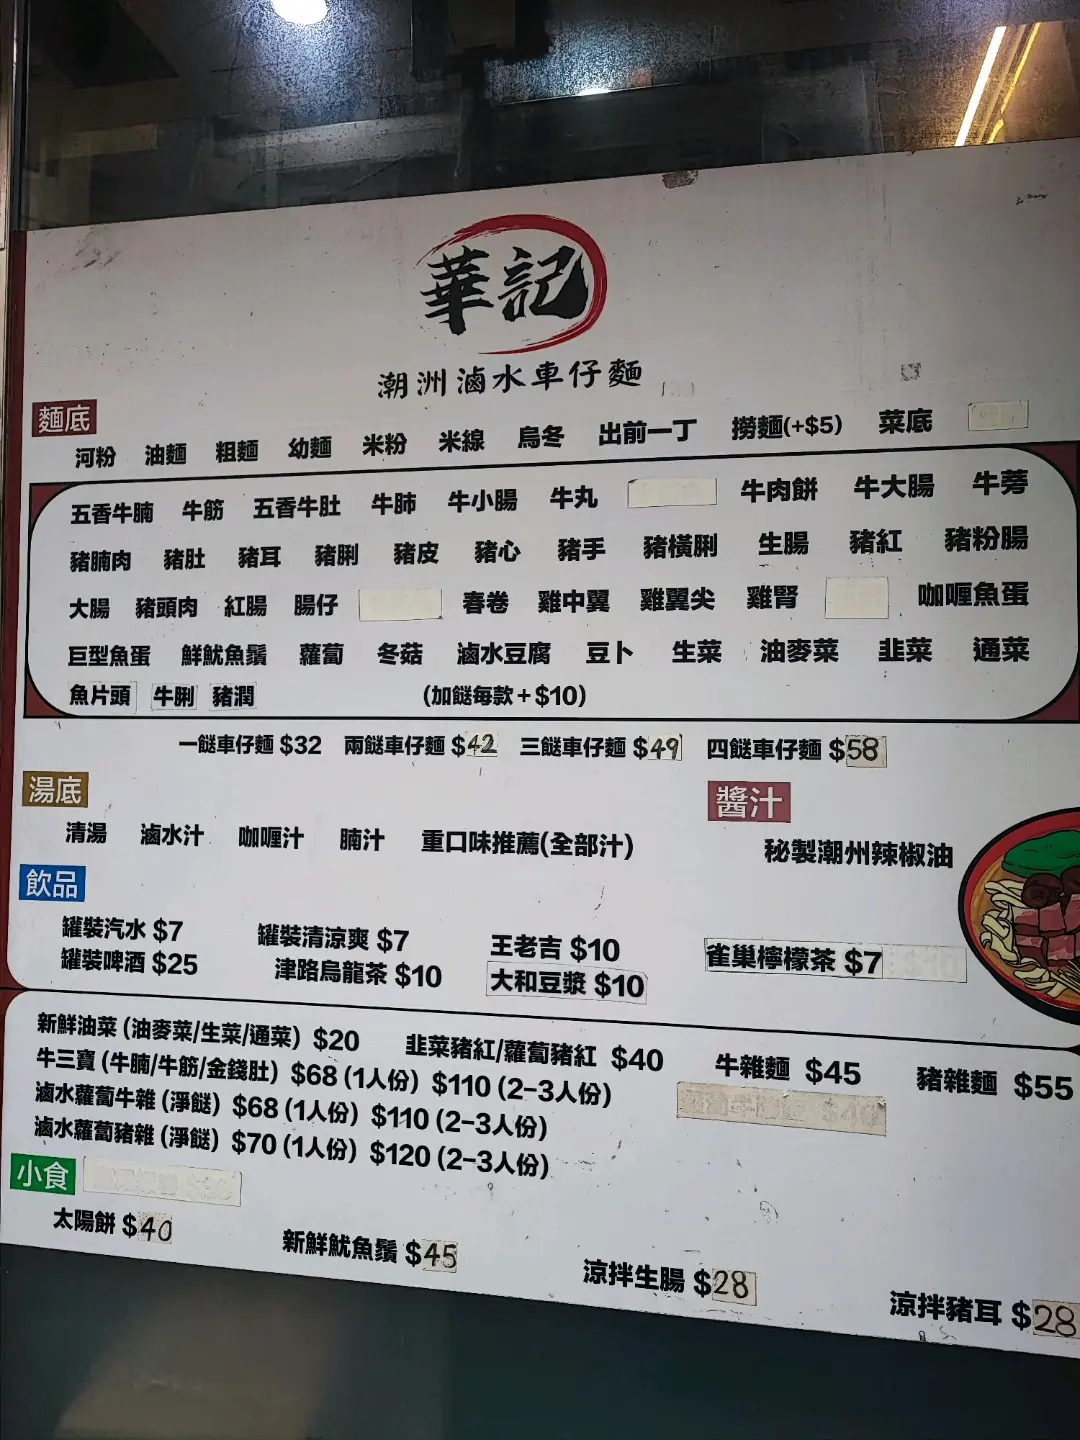 華記
潮洲滷水車仔麵
麵底
河粉 油麵 粗麵 幼麵 米粉 米線 烏冬 出前一丁 撈麵(+$5) 菜底
五香牛腩 牛筋 五香牛肚 牛肺 牛小腸 牛丸 牛肉餅 牛大腸 牛蒡
豬腩肉 豬肚 豬耳 豬脷 豬皮 豬心 豬手 豬橫脷 生腸 豬紅 豬粉腸
大腸 豬頭肉 紅腸 腸仔 春卷 雞中翼 雞翼尖 雞腎 咖喱魚蛋
巨型魚蛋 鮮魷魚鬚 蘿蔔 冬菇 滷水豆腐 豆卜 生菜 油麥菜 韭菜 通菜
魚片頭 牛脷 豬潤 (加餸每款+$10)
一餸車仔麵 $32 兩餸車仔麵 $42 三餸車仔麵 $49 四餸車仔麵 $58
湯底
清湯 滷水汁 咖喱汁 腩汁 重口味推薦(全部汁)
醬汁
秘製潮州辣椒油
飲品
罐裝汽水 $7 罐裝清涼爽 $7 王老吉 $10 雀巢檸檬茶 $7
罐裝啤酒 $25 津路烏龍茶 $10 大和豆漿 $10
新鮮油菜 (油麥菜/生菜/通菜) $20 韭菜豬紅/蘿蔔豬紅 $40 牛雜麵 $45 豬雜麵 $55
牛三寶 (牛腩/牛筋/金錢肚) $68 (1人份) $110 (2-3人份)
滷水蘿蔔牛雜 (淨餸) $68 (1人份) $110 (2-3人份)
滷水蘿蔔豬雜 (淨餸) $70 (1人份) $120 (2-3人份)
小食
太陽餅 $40 新鮮魷魚鬚 $45 涼拌生腸 $28 涼拌豬耳 $28